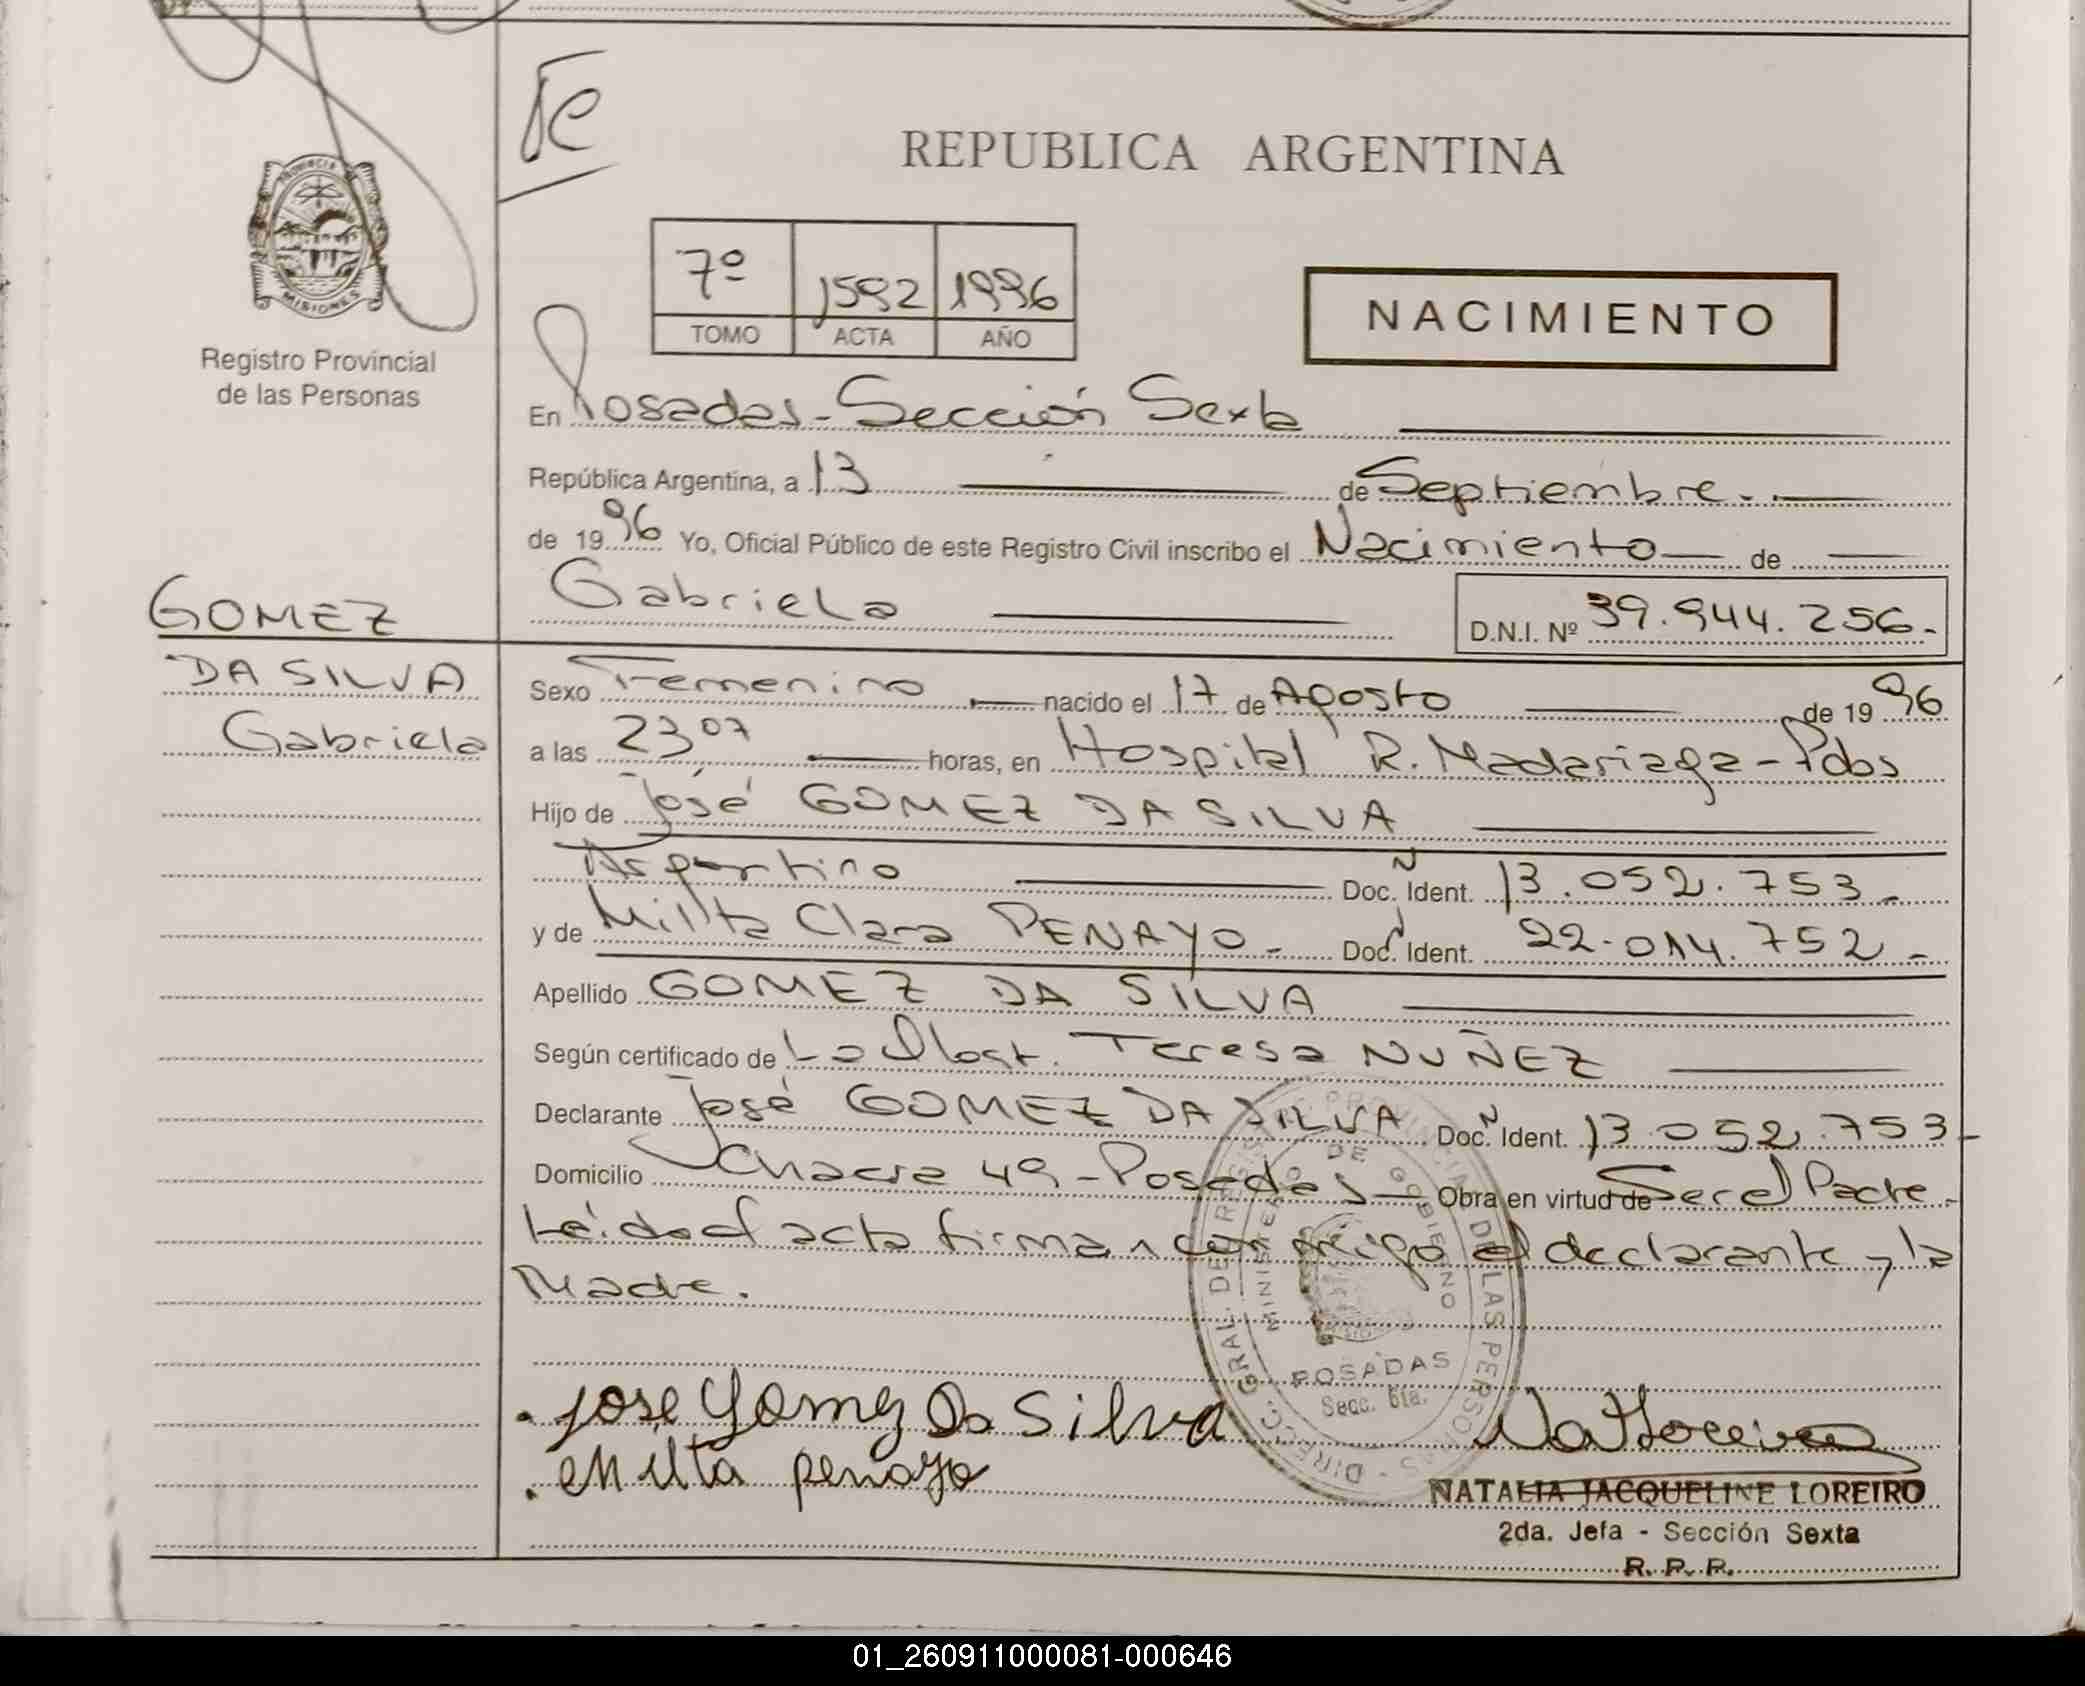 REPUBLICA ARGENTINA
PROVINCIA DE
MISIONES
Registro Provincial
de las Personas
7º 1592 1996
TOMO ACTA AÑO
NACIMIENTO
En Posadas - Sección Sexta
República Argentina, a 13 de Septiembre.
de 1996 Yo, Oficial Público de este Registro Civil inscribo el Nacimiento de
Gabriela
D.N.I. Nº 39.944.256.-
GOMEZ
DA SILVA
Gabriela
Sexo Femenino nacido el 17 de Agosto de 1996
a las 23 07 horas, en Hospital R. Madariaga - Pdas
Hijo de José GOMEZ DA SILVA
Argentino Doc. Ident. Nº 13.052.753.-
y de Milta Clara PENAYO.- Doc. Ident. Nº 22.014.752.-
Apellido GOMEZ DA SILVA
Según certificado de La Obst. Teresa NUÑEZ
Declarante José GOMEZ DA SILVA Doc. Ident. Nº 13.052.753-
Domicilio Chacra 49 - Posadas Obra en virtud de Ser el Padre.-
Leída el acta firman con migo el declarante y la
Madre.
DIRECC. GRAL. DE REGISTRO PROVINCIAL DE LAS PERSONAS
MINISTERIO DE GOBIERNO
POSADAS
Secc. 6ta.
Jose Gomez Da Silva
Milta penayo
NATALIA JACQUELINE LOREIRO
2da. Jefa - Sección Sexta
R. P. P.
01_260911000081-000646